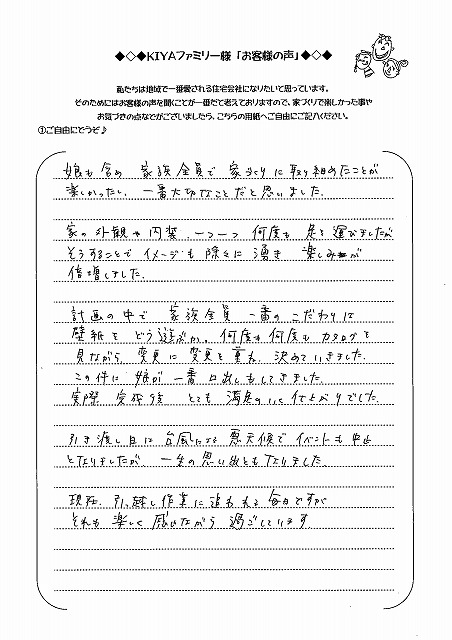 ◆◇◆KIYAファミリー様「お客様の声」◆◇◆
私たちは地域で一番愛される住宅会社になりたいて思っています。
そのためにはお客様の声を聞くことが一番だて考えておりますので、家づくりで楽しかった事や
お気づきの点などがございましたら、こちらの用紙へご自由にご記入ください。
①ご自由にどうぞ♪
娘も含め 家族全員で 家づくりに取り組めたことが
楽しかったし、一番大切なことだと思いました。
家の外観や内装、一つ一つ 何度も 足を運びましたが
そうすることで イメージも 除々に 湧き 楽しみが
倍増しました。
計画の中で 家族全員 一番の こだわりは
壁紙を どう選ぶか。何度も何度も カタログを
見ながら 変更に 変更を 重ね 決めていきました。
この件に 娘が 一番 口出しもしてきました。
実際 完成後 とても 満足のいく 仕上がりでした。
引き渡し日は 台風による 悪天候で イベントも 中止
となりましたが、一生の思い出ともなりました。
現在、引越し作業に追われる 毎日ですが
それも 楽しく 感じながら 過ごしています。